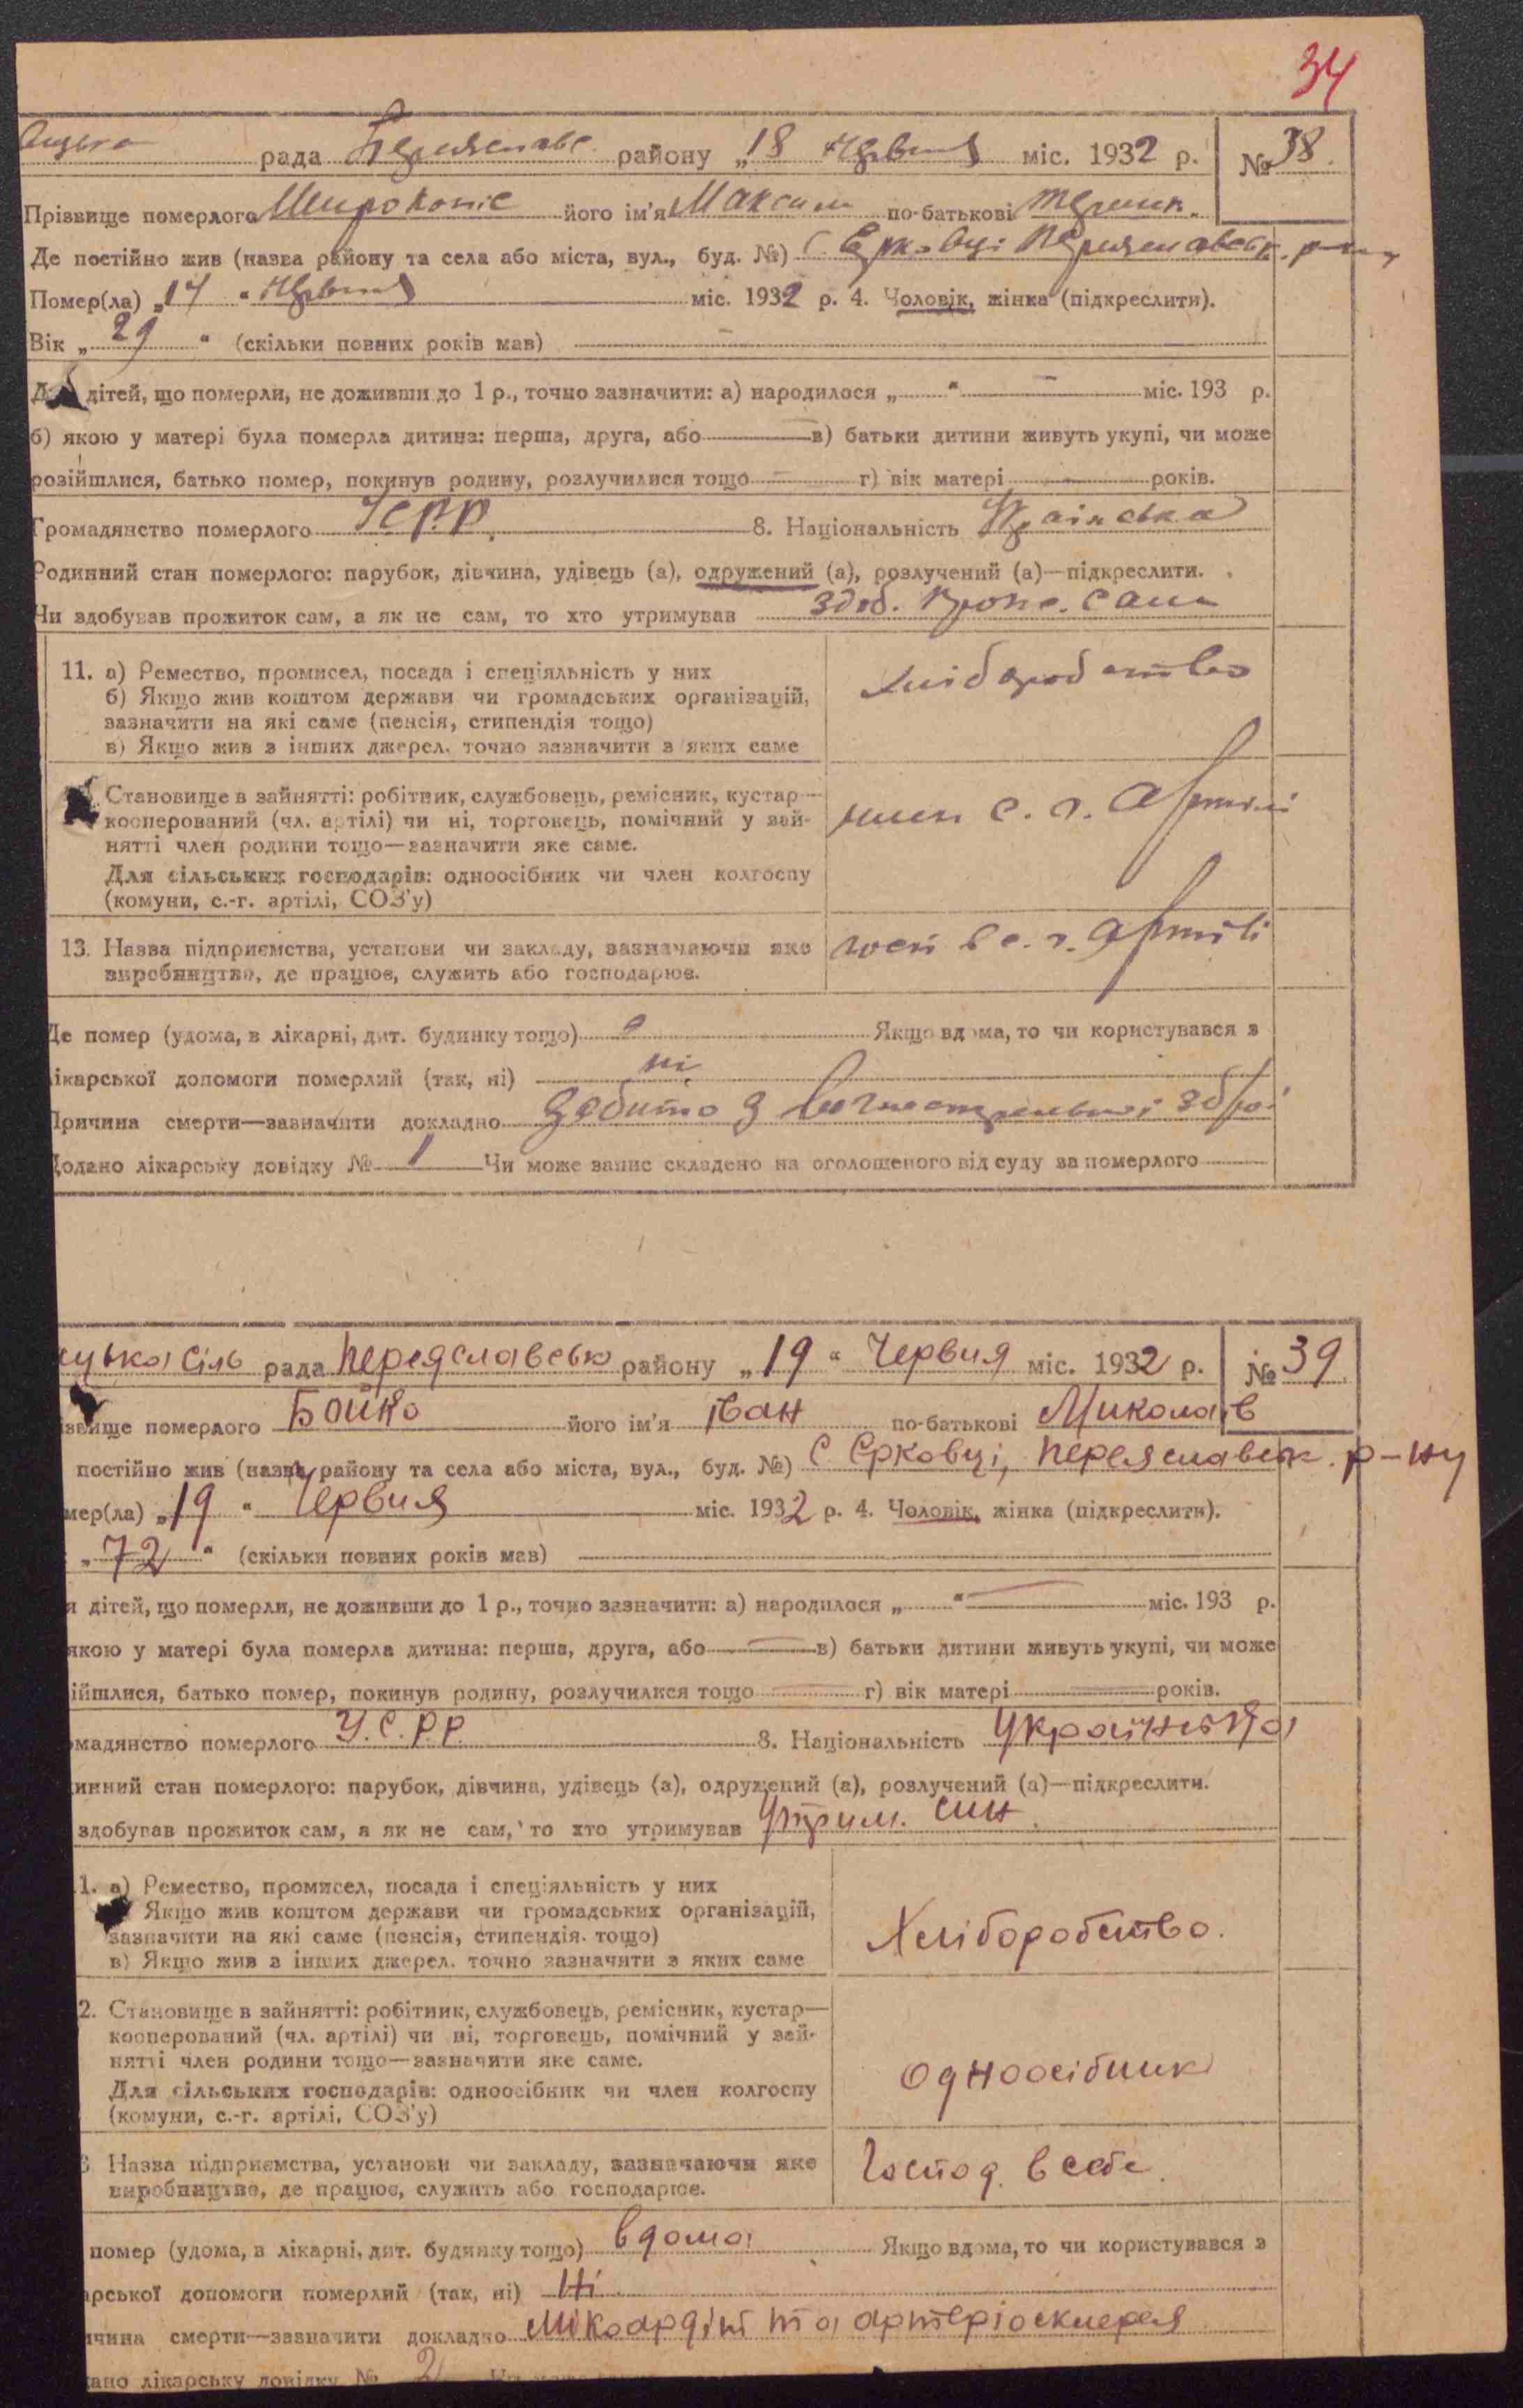 34
рада Переяславс. району „18 червня міс. 1932 р. № 38.
Прізвище померлого Широкопіс його ім'я Максим по-батькові
Де постійно жив (назва району та села або міста, вул., буд. №) с. Єрковці Переяславськ. р-ну
Помер(ла) „17 “ червня міс. 1932 р. 4. Чоловік, жінка (підкреслити).
Вік „ 29 “ (скільки повних років мав) —
дітей, що померли, не доживши до 1 р., точно зазначити: а) народилося „ “ — міс. 193 р.
б) якою у матері була померла дитина: перша, друга, або — в) батьки дитини живуть укупі, чи може
розійшлися, батько помер, покинув родину, розлучилися тощо — г) вік матері — років.
Громадянство померлого УСРР. 8. Національність Українська
Родинний стан померлого: парубок, дівчина, удівець (а), одружений (а), розлучений (а)—підкреслити.
Чи здобував прожиток сам, а як не сам, то хто утримував здоб. прож. сам
11. а) Ремество, промисел, посада і спеціяльність у них хліборобство
б) Якщо жив коштом держави чи громадських організацій,
зазначити на які саме (пенсія, стипендія тощо)
в) Якщо жив з інших джерел, точно зазначити з яких саме
Становище в зайнятті: робітник, службовець, ремісник, кустар—
кооперований (чл. артілі) чи ні, торговець, помічний у зай-
нятті член родини тощо—зазначити яке саме. член с. г. артілі
Для сільських господарів: одноосібник чи член колгоспу
(комуни, с.-г. артілі, СОЗ'у)
13. Назва підприємства, установи чи закладу, зазначаючи яке госп в с. г. артілі
виробництво, де працює, служить або господарює.
Де помер (удома, в лікарні, дит. будинку тощо) Якщо вдома, то чи користувався з
лікарської допомоги померлий (так, ні) ні
Причина смерти—зазначити докладно Забито з вогнестрельної зброї
Додано лікарську довідку № 1 Чи може запис складено на оголошеного від суду за померлого
цька сіль рада Переяславськ району „19 “ Червня міс. 1932 р. № 39
звище померлого Бойко його ім'я Іван по-батькові Миколаїв
постійно жив (назва району та села або міста, вул., буд. №) с Єрковці, Переяславськ. р-ну
мер(ла) „19 “ Червня міс. 1932 р. 4. Чоловік, жінка (підкреслити).
„ 72 “ (скільки повних років мав)
я дітей, що померли, не доживши до 1 р., точно зазначити: а) народилося „ “ — міс. 193 р.
якою у матері була померла дитина: перша, друга, або — в) батьки дитини живуть укупі, чи може
ійшлися, батько помер, покинув родину, розлучилися тощо — г) вік матері — років.
мадянство померлого У.С.Р.Р. 8. Національність Українська
инний стан померлого: парубок, дівчина, удівець (а), одружений (а), розлучений (а)—підкреслити.
здобував прожиток сам, а як не сам, то хто утримував Утрим. син.
1. а) Ремество, промисел, посада і спеціяльність у них
Якщо жив коштом держави чи громадських організацій,
зазначити на які саме (пенсія, стипендія тощо) Хліборобство.
в) Якщо жив з інших джерел, точно зазначити з яких саме
2. Становище в зайнятті: робітник, службовець, ремісник, кустар—
кооперований (чл. артілі) чи ні, торговець, помічний у зай-
нятті член родини тощо—зазначити яке саме. Одноосібник
Для сільських господарів: одноосібник чи член колгоспу
(комуни, с.-г. артілі, СОЗ'у)
3 Назва підприємства, установи чи закладу, зазначаючи яке Господ. в себе.
виробництво, де працює, служить або господарює.
помер (удома, в лікарні, дит. будинку тощо) вдома Якщо вдома, то чи користувався з
арської допомоги померлий (так, ні) Ні
ичина смерти—зазначити докладно міокардіт та артеріосклероз
ано лікарську довідку № 2